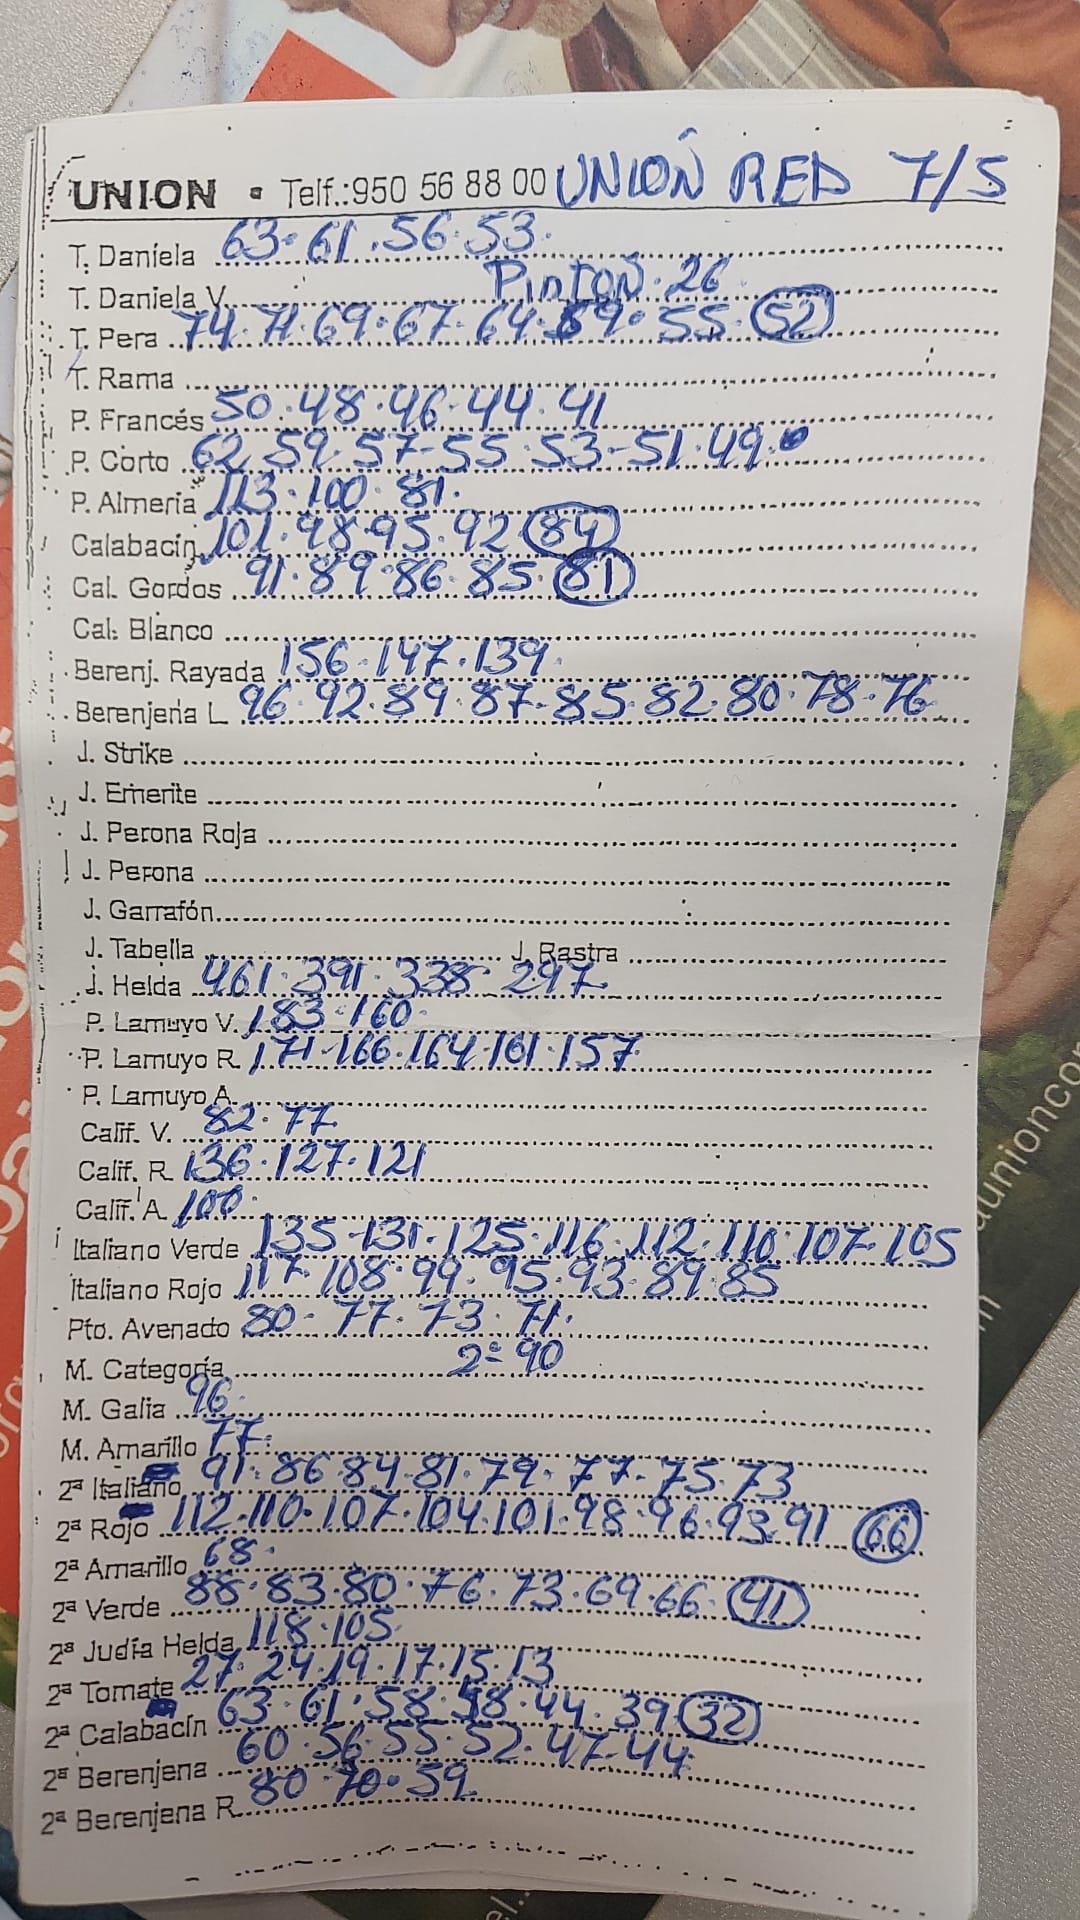 UNION • Telf.:950 56 88 00 UNION RED 7/5
T. Daniela 63. 61. 56. 53.
T. Daniela V. Pinton. 26
T. Pera 74. 71. 69. 67. 64. 59. 55. 52
T. Rama
P. Francés 50. 48. 46. 44. 41
P. Corto 62. 59. 57-55. 53-51. 49.
P. Almeria 113. 100. 81.
Calabacin 101. 98. 95. 92. 84
Cal. Gordos 91. 89. 86. 85. 81
Cal. Blanco
Berenj. Rayada 156. 147. 139.
Berenjena L 96. 92. 89. 87. 85. 82. 80. 78. 76
J. Strike
J. Emerite
J. Perona Roja
J. Perona
J. Garrafón
J. Tabella J. Rastra
J. Helda 461. 391. 338. 297.
P. Lamuyo V. 183. 160.
P. Lamuyo R. 171-166. 164. 161. 157
P. Lamuyo A.
Calif. V. 82. 77
Calif. R. 136. 127. 121
Calif. A. 100.
Italiano Verde 135-131. 125. 116. 112. 110. 107. 105
Italiano Rojo 117. 108. 99. 95. 93. 89. 85
Pto. Avenado 80. 77. 73. 71.
M. Categoría 2ª 90
M. Galia 96.
M. Amarillo 77.
2ª Italiano 91. 86. 84. 81. 79. 77-75. 73
2ª Rojo 112. 110. 107. 104. 101. 98. 96. 93. 91 66
2ª Amarillo 68.
2ª Verde 88. 83. 80. 76. 73. 69. 66. 41
2ª Judía Helda 118. 105.
2ª Tomate 27. 24. 19. 17. 15. 13
2ª Calabacín 63. 61. 58. 44. 39. 32
2ª Berenjena 60. 56. 55. 52. 47. 44
2ª Berenjena R. 80. 70. 59